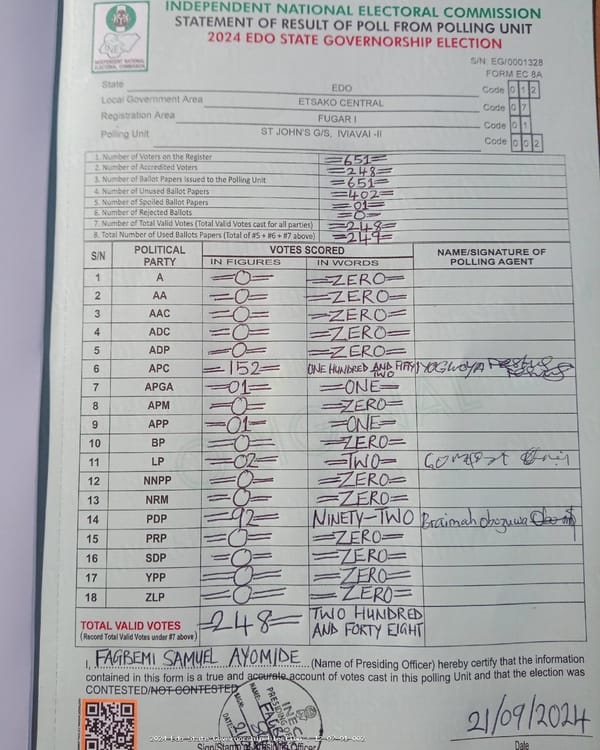 INDEPENDENT NATIONAL ELECTORAL COMMISSION
STATEMENT OF RESULT OF POLL FROM POLLING UNIT
2024 EDO STATE GOVERNORSHIP ELECTION
INEC
INDEPENDENT NATIONAL ELECTORAL COMMISSION
S/N: EG/0001328
FORM EC 8A
State EDO Code 0 1 2
Local Government Area ETSAKO CENTRAL Code 0 7
Registration Area FUGAR I Code 0 1
Polling Unit ST JOHN'S G/S, IVIAVAI -II Code 0 0 2
1. Number of Voters on the Register =651=
2. Number of Accredited Voters =248=
3. Number of Ballot Papers Issued to the Polling Unit =651=
4. Number of Unused Ballot Papers =402=
5. Number of Spoiled Ballot Papers =01=
6. Number of Rejected Ballots =0=
7. Number of Total Valid Votes (Total Valid Votes cast for all parties) =248=
8. Total Number of Used Ballots Papers (Total of #5 + #6 + #7 above) =249=
S/N POLITICAL PARTY VOTES SCORED NAME/SIGNATURE OF POLLING AGENT
IN FIGURES IN WORDS
1 A =0= =ZERO=
2 AA =0= =ZERO=
3 AAC =0= =ZERO=
4 ADC =0= =ZERO=
5 ADP =0= =ZERO=
6 APC =152= ONE HUNDRED AND FIFTY TWO
7 APGA =01= =ONE=
8 APM =0= =ZERO=
9 APP =01= =ONE=
10 BP =0= =ZERO=
11 LP =02= =TWO=
12 NNPP =0= =ZERO=
13 NRM =0= =ZERO=
14 PDP =92= NINETY-TWO Braimah
15 PRP =0= =ZERO=
16 SDP =0= =ZERO=
17 YPP =0= =ZERO=
18 ZLP =0= =ZERO=
TOTAL VALID VOTES =248= TWO HUNDRED
(Record Total Valid Votes under #7 above) AND FORTY EIGHT
I, FAGBEMI SAMUEL AYOMIDE (Name of Presiding Officer) hereby certify that the information
contained in this form is a true and accurate account of votes cast in this polling Unit and that the election was
CONTESTED/NOT CONTESTED
21/09/2024
Date